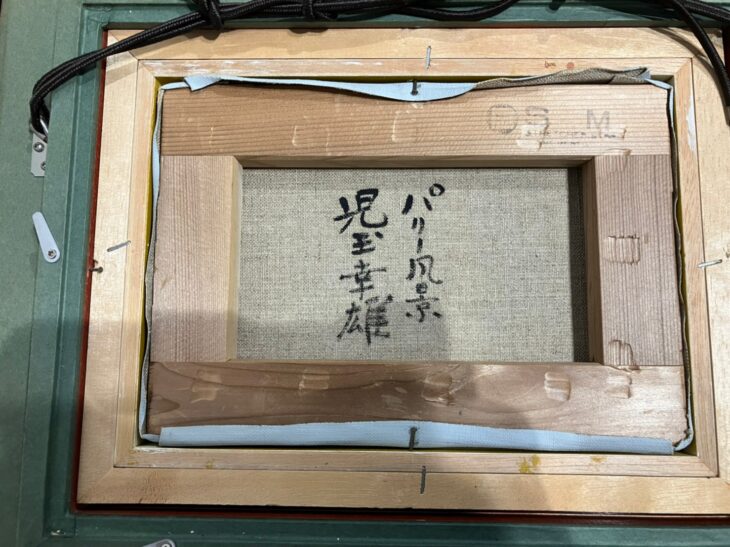 パリー風景
児玉幸雄
S M